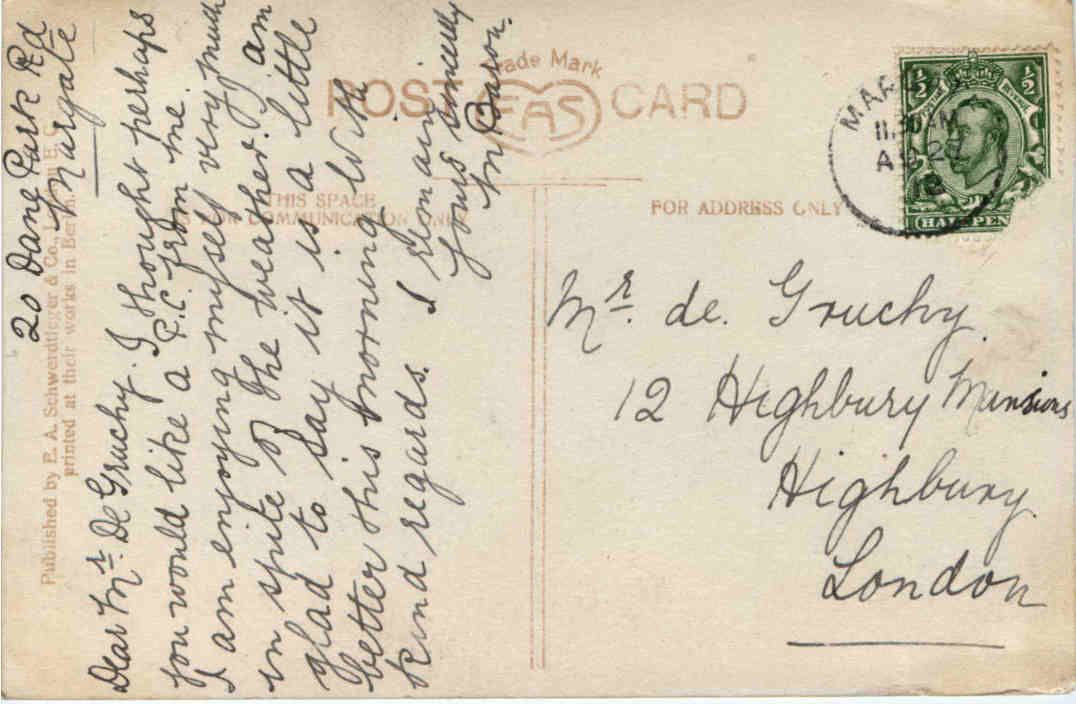 20 Dane Park Rd
Margate
Dear Mr. De Gruchy. I thought perhaps
you would like a P.C. from me.
I am enjoying myself very much
in spite of the weather. I am
glad to say it is a little
better this morning. With
kind regards. I remain
yours sincerely
M Baron.
Published by E. A. Schwerdtfeger & Co., London E.C.
printed at their works in Berlin.
Trade Mark
POST CARD
EAS
THIS SPACE
FOR COMMUNICATION ONLY
FOR ADDRESS ONLY
½ ½
HALFPEN
MAR
11.30
2
Mr. de. Gruchy.
12 Highbury Mansions
Highbury.
London